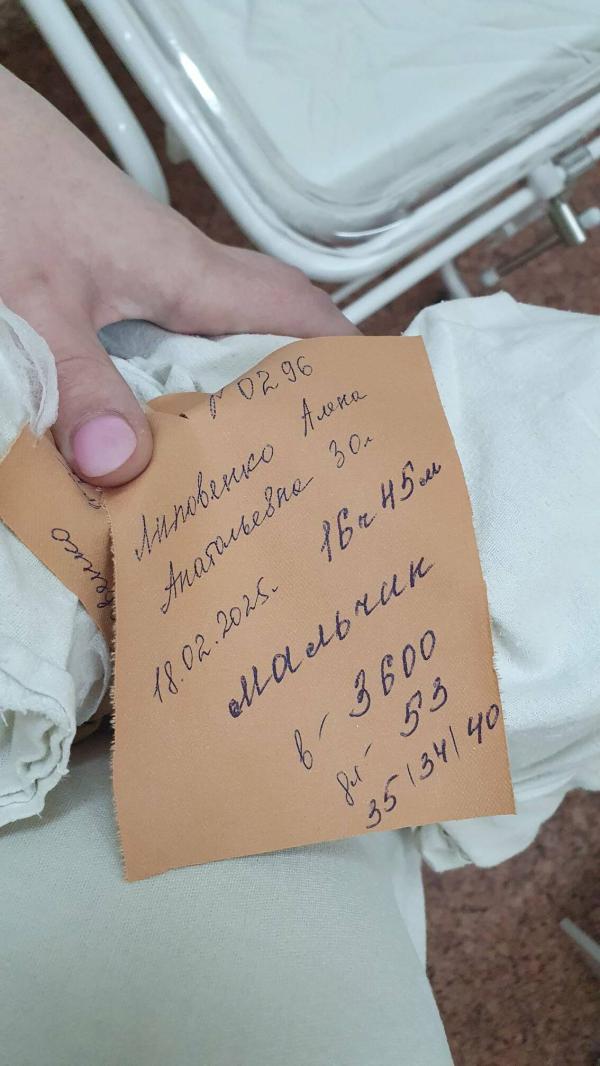 N 0296
Липовенко Алена
Анатольевна 30л
18.02.2025г. 16ч 45м
мальчик
в- 3600
дл- 53
35/34/40
венко